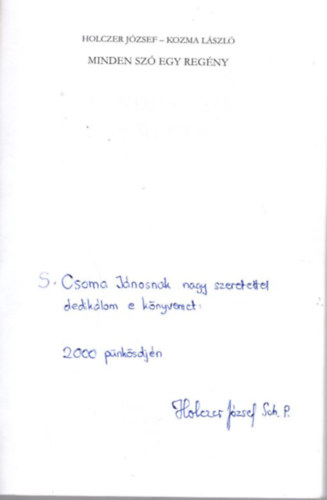 HOLCZER JÓZSEF – KOZMA LÁSZLÓ
MINDEN SZÓ EGY REGÉNY
S. Csoma Jánosnak nagy szeretettel
dedikálom e könyvemet:
2000 pünkösdjén
Holczer József Sch. P.